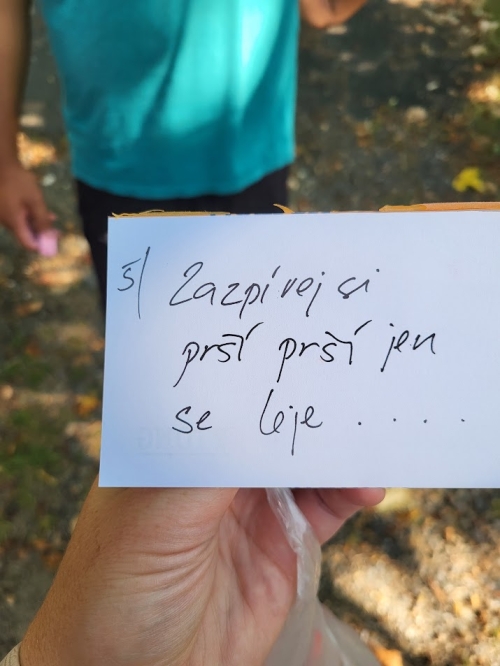 5/ Zazpívej si
prší prší jen
se leje .....